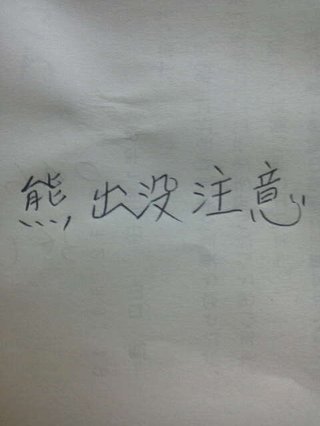 熊出没注意